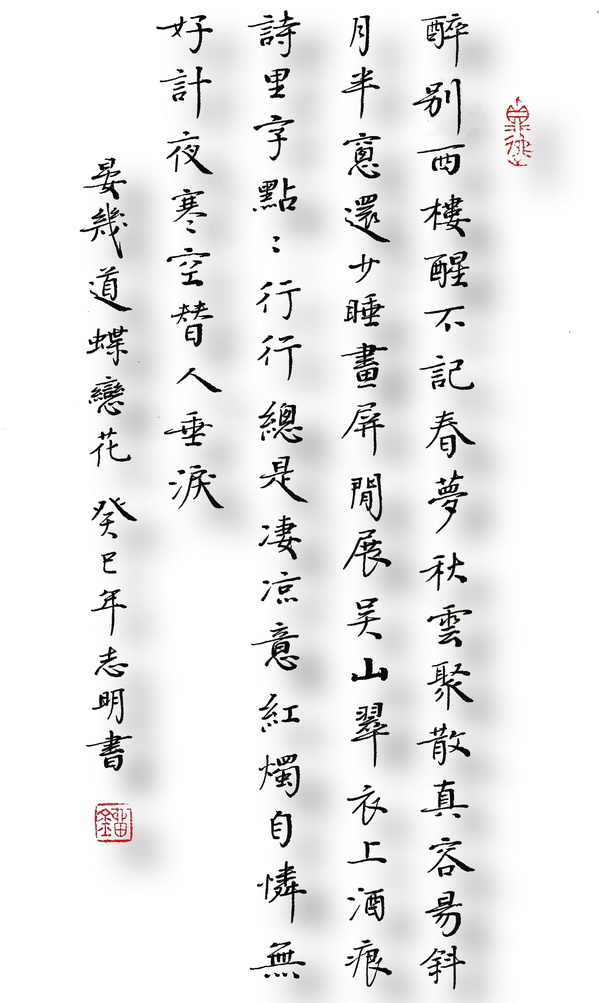 醉别西樓醒不記春夢秋雲聚散真容易斜
月半窗還少睡畫屏閒展吴山翠衣上酒痕
詩里字點〻行行總是凄凉意紅燭自憐無
好計夜寒空替人垂淚
晏幾道蝶戀花 癸巳年志明書